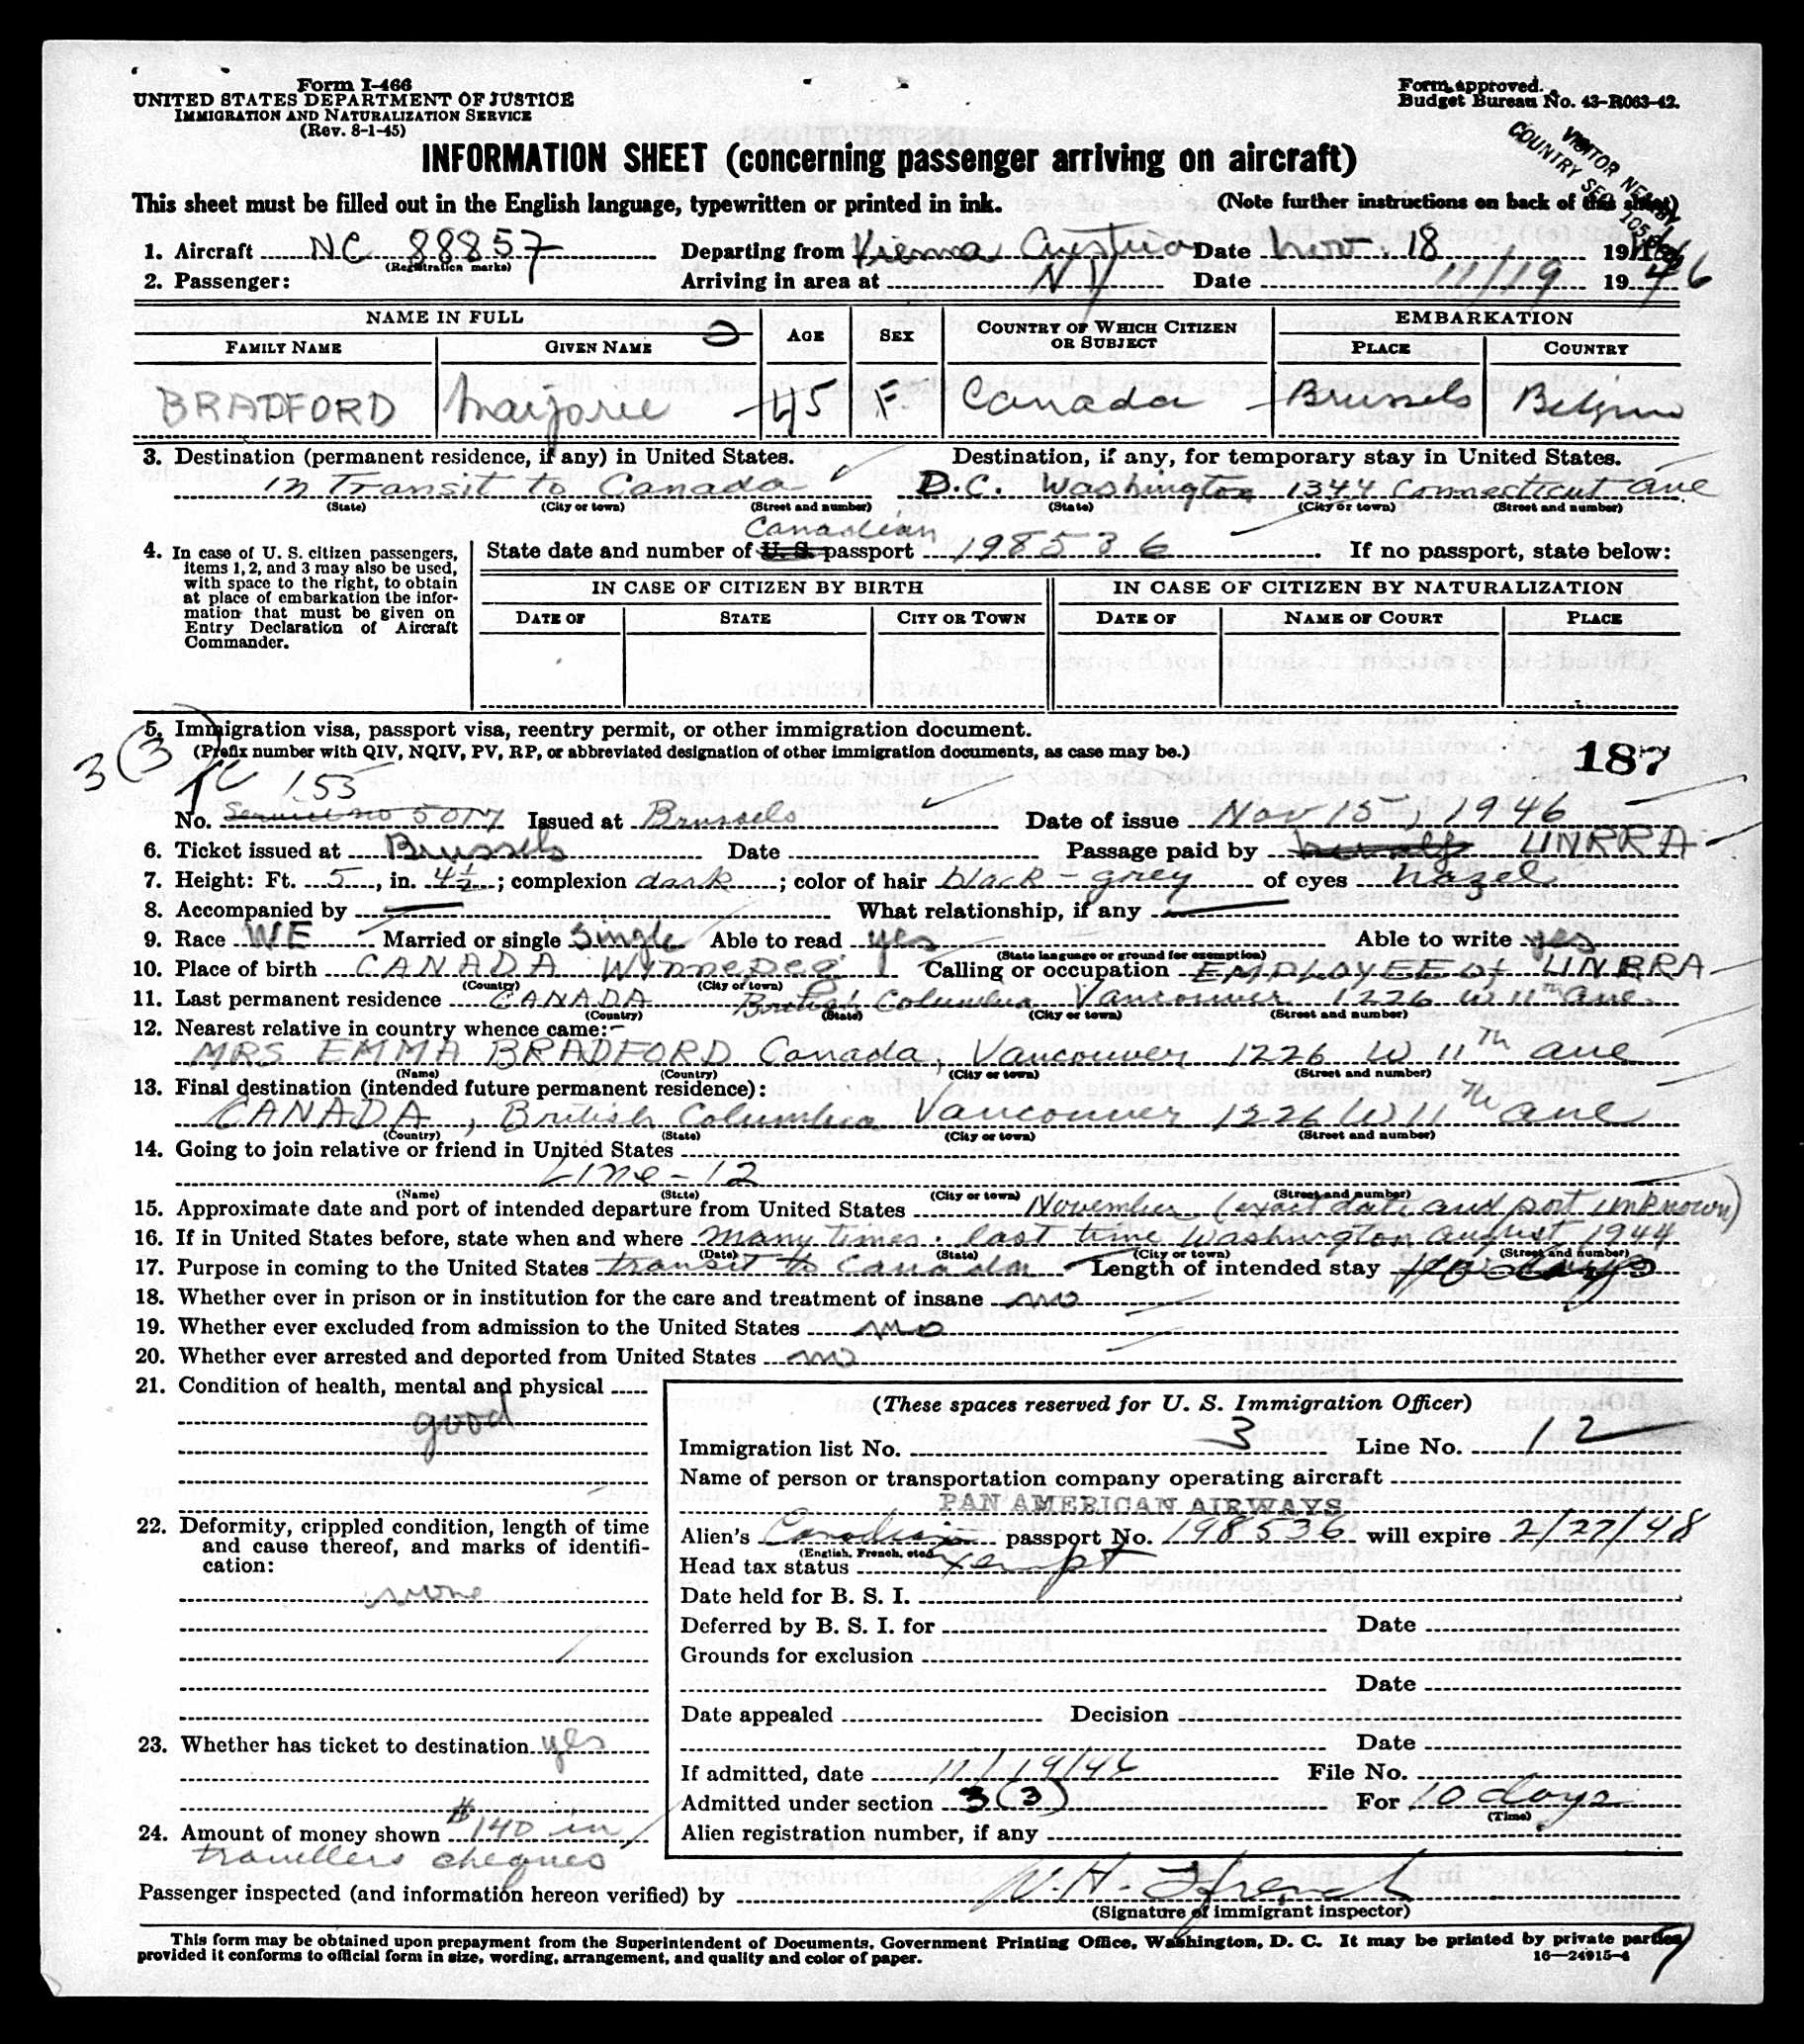 Form I-466
UNITED STATES DEPARTMENT OF JUSTICE
IMMIGRATION AND NATURALIZATION SERVICE
(Rev. 8-1-45)
Form approved.
Budget Bureau No. 43-R063-42.
VISITOR NEARBY
COUNTRY SEC. 105
INFORMATION SHEET (concerning passenger arriving on aircraft)
This sheet must be filled out in the English language, typewritten or printed in ink. (Note further instructions on back of this sheet)
1. Aircraft NC 88857 Departing from Vienna Austria Date Nov. 18 1946
(Registration marks)
2. Passenger: Arriving in area at NY Date 11/19 1946
NAME IN FULL AGE SEX COUNTRY OF WHICH CITIZEN OR SUBJECT EMBARKATION
FAMILY NAME GIVEN NAME PLACE COUNTRY
BRADFORD Marjorie 45 F Canada Brussels Belgium
3. Destination (permanent residence, if any) in United States. Destination, if any, for temporary stay in United States.
in Transit to Canada D.C. Washington 1344 Connecticut ave
(State) (City or town) (Street and number) (State) (City or town) (Street and number)
Canadian
4. In case of U. S. citizen passengers, items 1, 2, and 3 may also be used, with space to the right, to obtain at place of embarkation the information that must be given on Entry Declaration of Aircraft Commander.
State date and number of U. S. passport 198536 If no passport, state below:
IN CASE OF CITIZEN BY BIRTH IN CASE OF CITIZEN BY NATURALIZATION
DATE OF STATE CITY OR TOWN DATE OF NAME OF COURT PLACE
5. Immigration visa, passport visa, reentry permit, or other immigration document.
(Prefix number with QIV, NQIV, PV, RP, or abbreviated designation of other immigration documents, as case may be.)
3(3) 187
155
No. Service no 5017 Issued at Brussels Date of issue Nov 15, 1946
6. Ticket issued at Brussels Date Passage paid by herself UNRRA
7. Height: Ft. 5, in. 4½; complexion dark; color of hair black - grey of eyes hazel
8. Accompanied by — What relationship, if any —
9. Race WE Married or single Single Able to read yes Able to write yes
(State language or ground for exemption)
10. Place of birth CANADA WYNNEPEG Calling or occupation EMPLOYEE of UNRRA
(Country) (City or town)
11. Last permanent residence CANADA British Columbia Vancouver 1226 W 11th ave.
(Country) (State) (City or town) (Street and number)
12. Nearest relative in country whence came:-
MRS EMMA BRADFORD Canada, Vancouver 1226 W 11th ave
(Name) (Country) (City or town) (Street and number)
13. Final destination (intended future permanent residence):
CANADA, British Columbia Vancouver 1226 W 11th ave
(Country) (State) (City or town) (Street and number)
14. Going to join relative or friend in United States
Line - 12
(Name) (State) (City or town) (Street and number)
15. Approximate date and port of intended departure from United States November (exact date and port unknown)
16. If in United States before, state when and where many times. last time Washington august 1944
(Date) (State) (City or town) (Street and number)
17. Purpose in coming to the United States transit to Canada Length of intended stay 10 days
18. Whether ever in prison or in institution for the care and treatment of insane no
19. Whether ever excluded from admission to the United States no
20. Whether ever arrested and deported from United States no
21. Condition of health, mental and physical
good
22. Deformity, crippled condition, length of time and cause thereof, and marks of identification:
none
23. Whether has ticket to destination yes
24. Amount of money shown $140 in
travellers cheques
(These spaces reserved for U. S. Immigration Officer)
Immigration list No. 3 Line No. 12
Name of person or transportation company operating aircraft
PAN AMERICAN AIRWAYS
Alien's Canadian passport No. 198536 will expire 2/27/48
(English, French, etc.)
Head tax status Exempt
Date held for B. S. I.
Deferred by B. S. I. for Date
Grounds for exclusion
Date
Date appealed Decision
Date
If admitted, date 11/19/46 File No.
Admitted under section 3(3) For 10 days
(Time)
Alien registration number, if any
Passenger inspected (and information hereon verified) by W. H. French
(Signature of immigrant inspector)
This form may be obtained upon prepayment from the Superintendent of Documents, Government Printing Office, Washington, D. C. It may be printed by private parties
provided it conforms to official form in size, wording, arrangement, and quality and color of paper. 16—24915-4